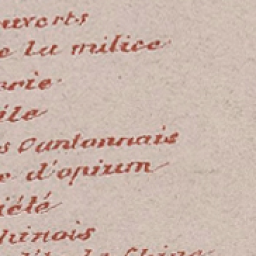 ouverts
e la milice
erie
ile
s Cantonnais
e d'opium
iété
hinois
de la Chine